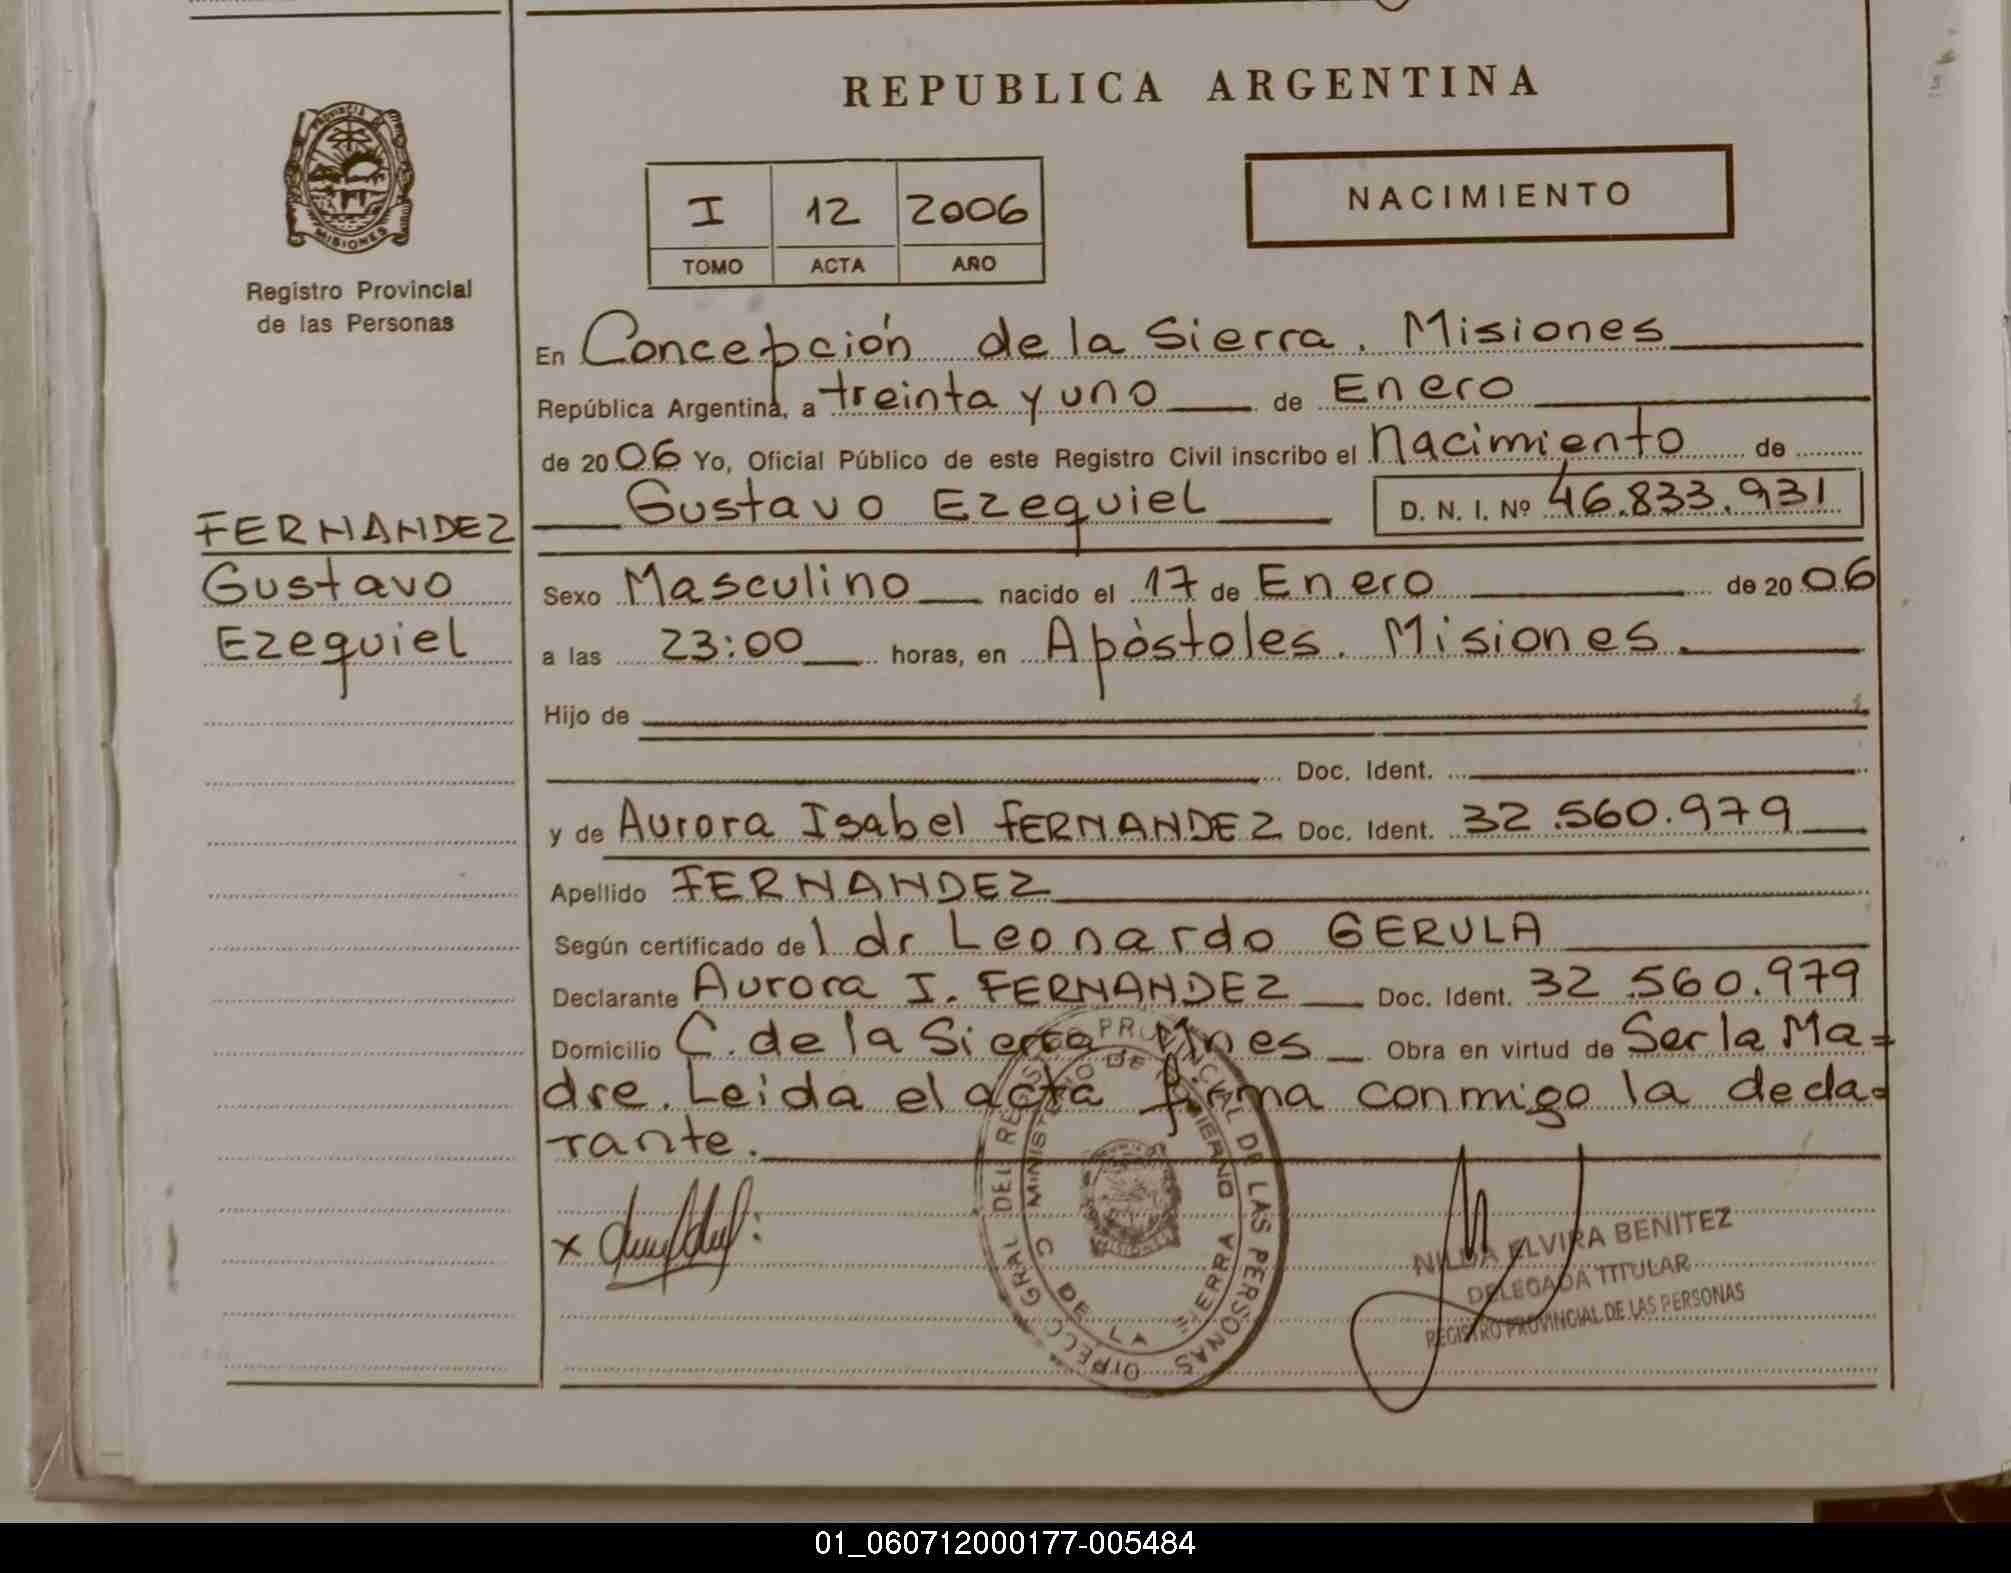 REPUBLICA ARGENTINA
PROVINCIA DE
MISIONES
Registro Provincial
de las Personas
I 12 2006
TOMO ACTA AÑO
NACIMIENTO
En Concepción de la Sierra. Misiones
República Argentina, a treinta y uno de Enero
de 2006 Yo, Oficial Público de este Registro Civil inscribo el Nacimiento de
FERNANDEZ
Gustavo
Ezequiel
Gustavo Ezequiel D. N. I. Nº 46.833.931
Sexo Masculino nacido el 17 de Enero de 2006
a las 23:00 horas, en Apóstoles. Misiones
Hijo de
Doc. Ident.
y de Aurora Isabel FERNANDEZ Doc. Ident. 32.560.979
Apellido FERNANDEZ
Según certificado del dr Leonardo GERULA
Declarante Aurora I. FERNANDEZ Doc. Ident. 32.560.979
Domicilio C. de la Sierra Mnes Obra en virtud de Ser la Ma-
dre. Leida el acta firma conmigo la decla-
rante.
x
DIRECC GRAL DEL REGISTRO PROVINCIAL DE LAS PERSONAS
MINISTERIO DE GOBIERNO
C DE LA SIERRA
MISIONES
NILDA ELVIRA BENITEZ
DELEGADA TITULAR
REGISTRO PROVINCIAL DE LAS PERSONAS
01_060712000177-005484